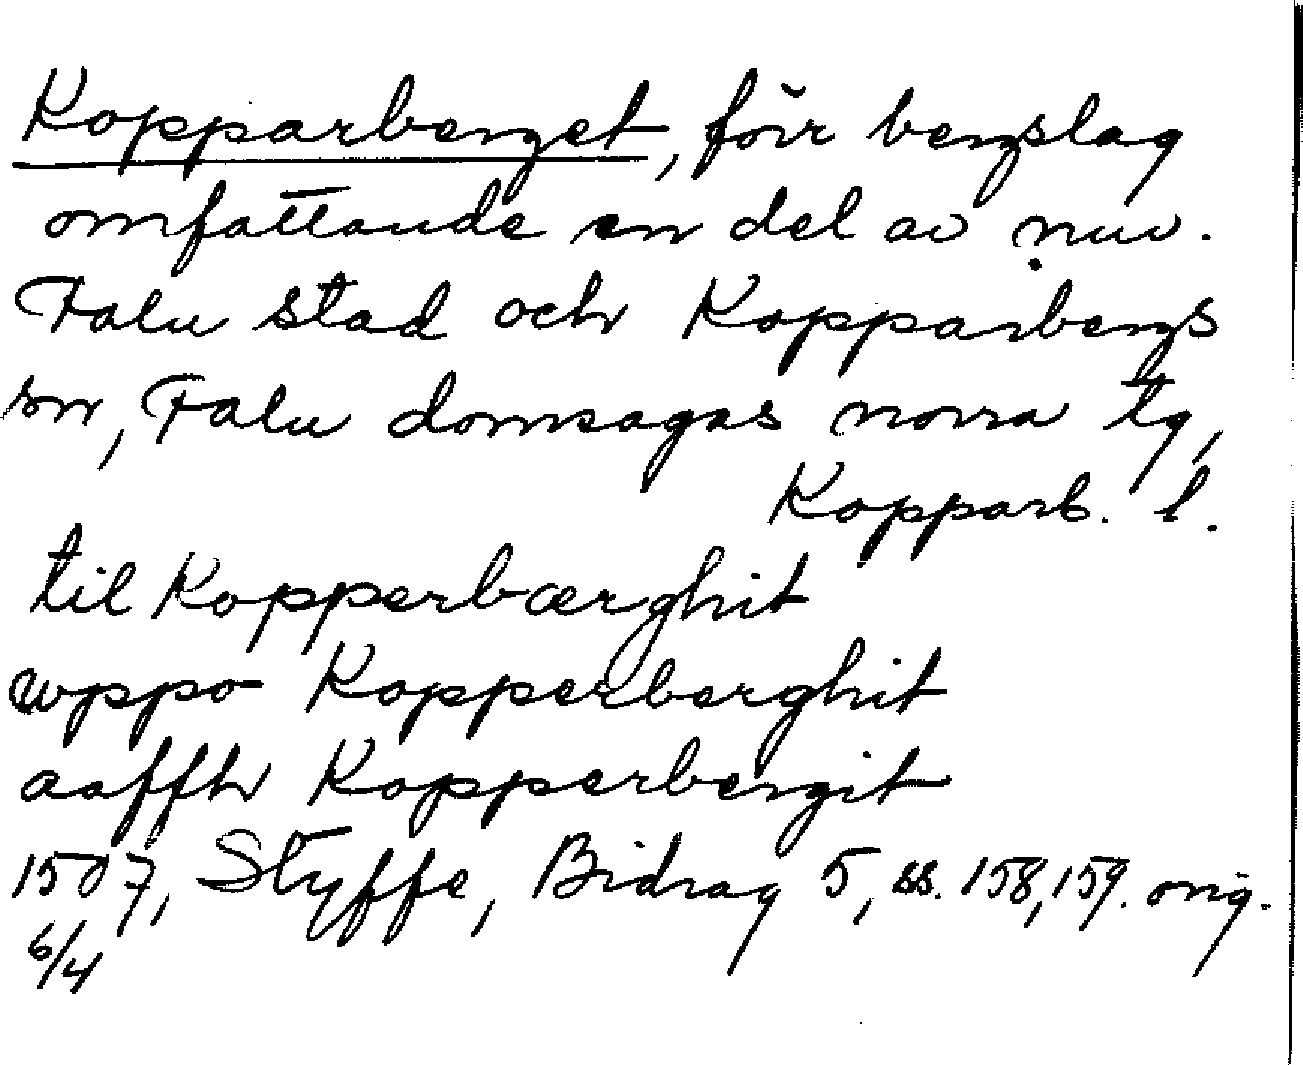 Kopparberget, förr bergslag
omfattande en del av nuv.
Falu stad och Kopparbergs
sn, Falu domsagas norra tg,
Kopparb. l.
til Kopperbærghit
wppo Kopperberghit
aaffh Kopperbergit
1507, Styffe, Bidrag 5, ss. 158, 159. orig.
6/4